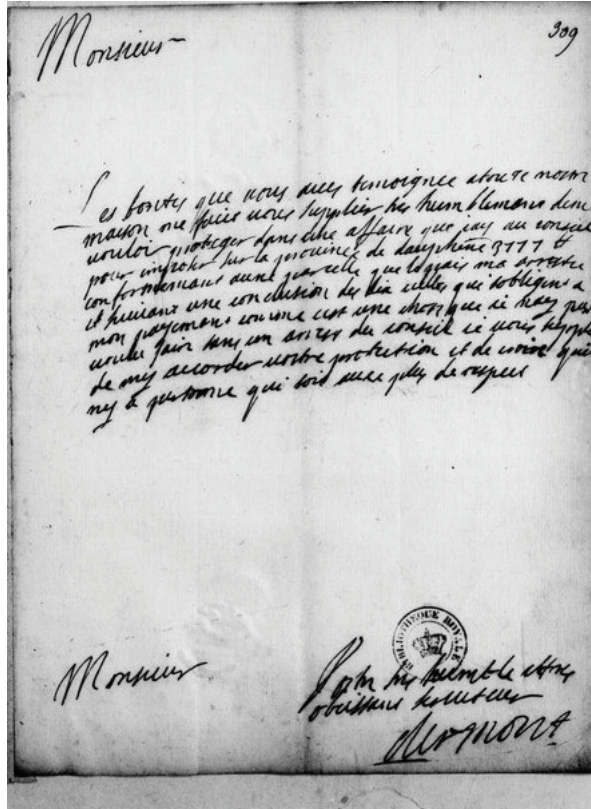 309
Monsieur
Les bontes que vous aues temoignee a toute nostre
maison me vous supplier tres humblemans de me
vouloir proteger dans une affaire que jay au conseil
pour sur la prouince de dauphine 3777 tt
conformemans a une parcelle que ma arreste
et suiuant une conclusion des dix uilles qui sobligent a
mon payemans comme cest une chose que ie nay peu
faire sans un arrest du conseil ie vous supplie
de my accorder vostre protection et de croire quil
ny a personne qui soit auec plus de respect
Monsieur
BIBLIOTHEQUE ROYALE
Vostre tres humble et tres
obeissant seruiteur
Clermont